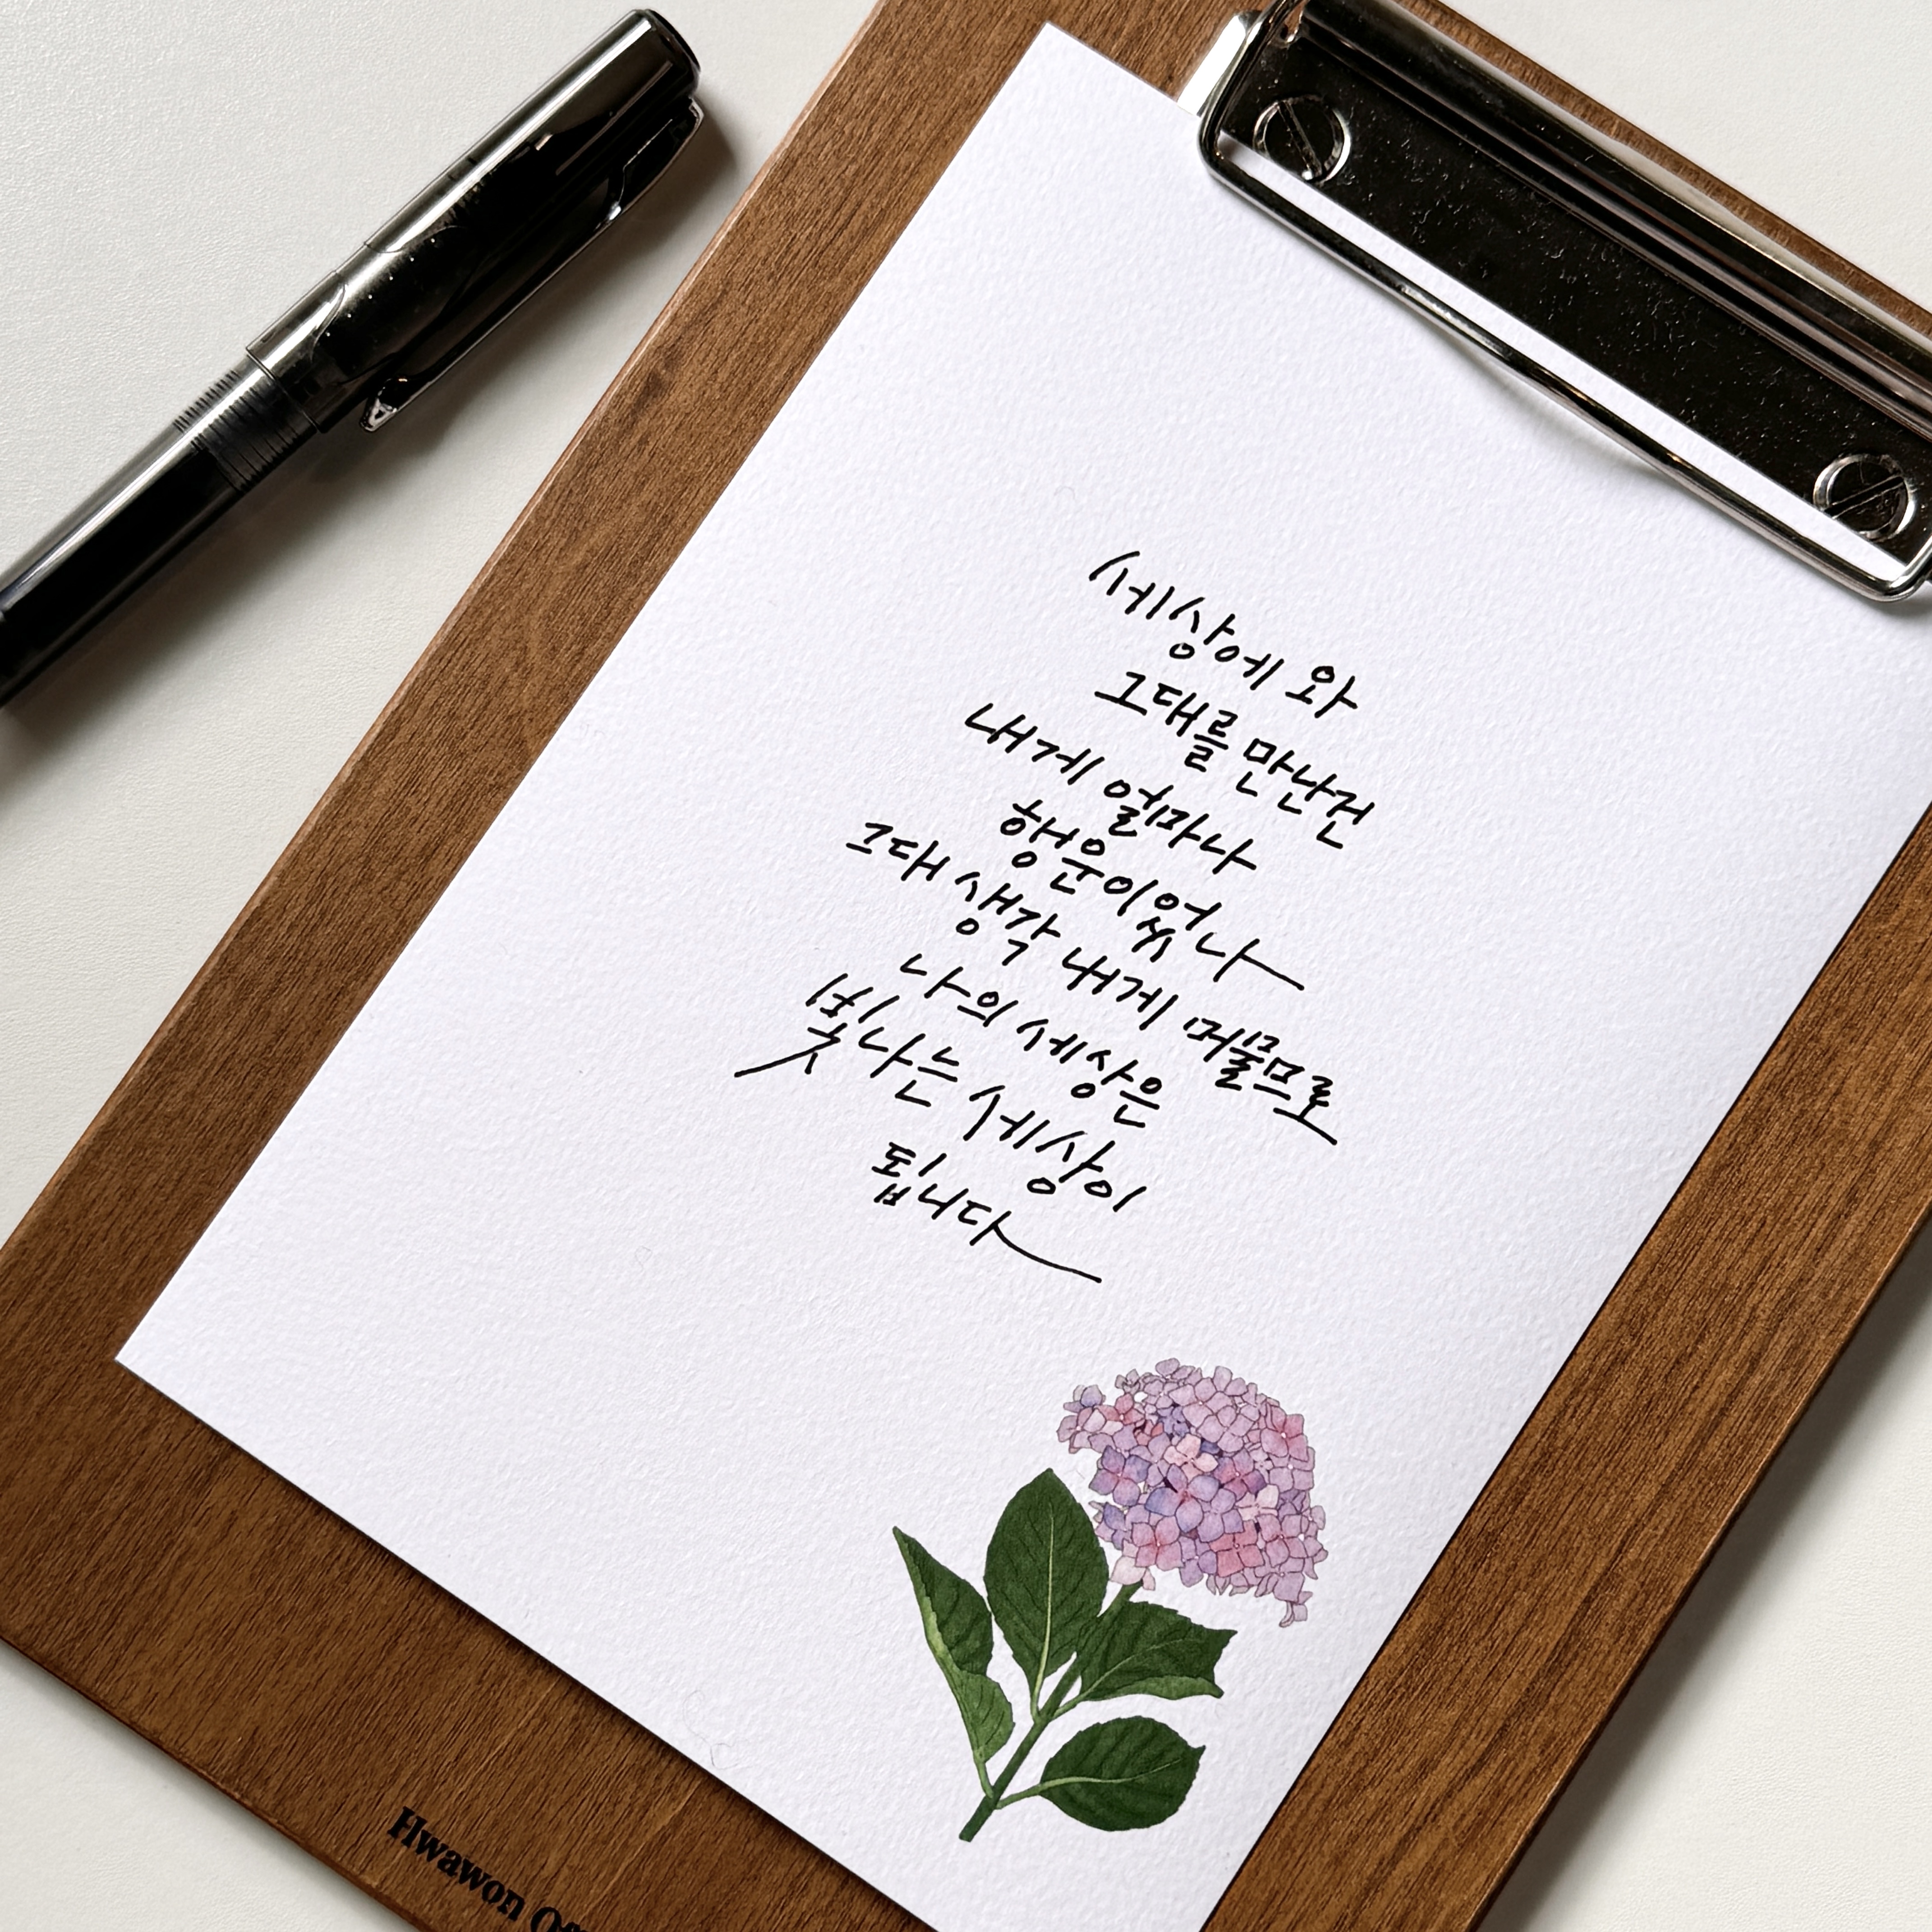 세상에 와
그대를 만난건
내게 얼마나
행운이었나
그대 생각 내게 머물므로
나의 세상은
빛나는 세상이
됩니다
Hwawon